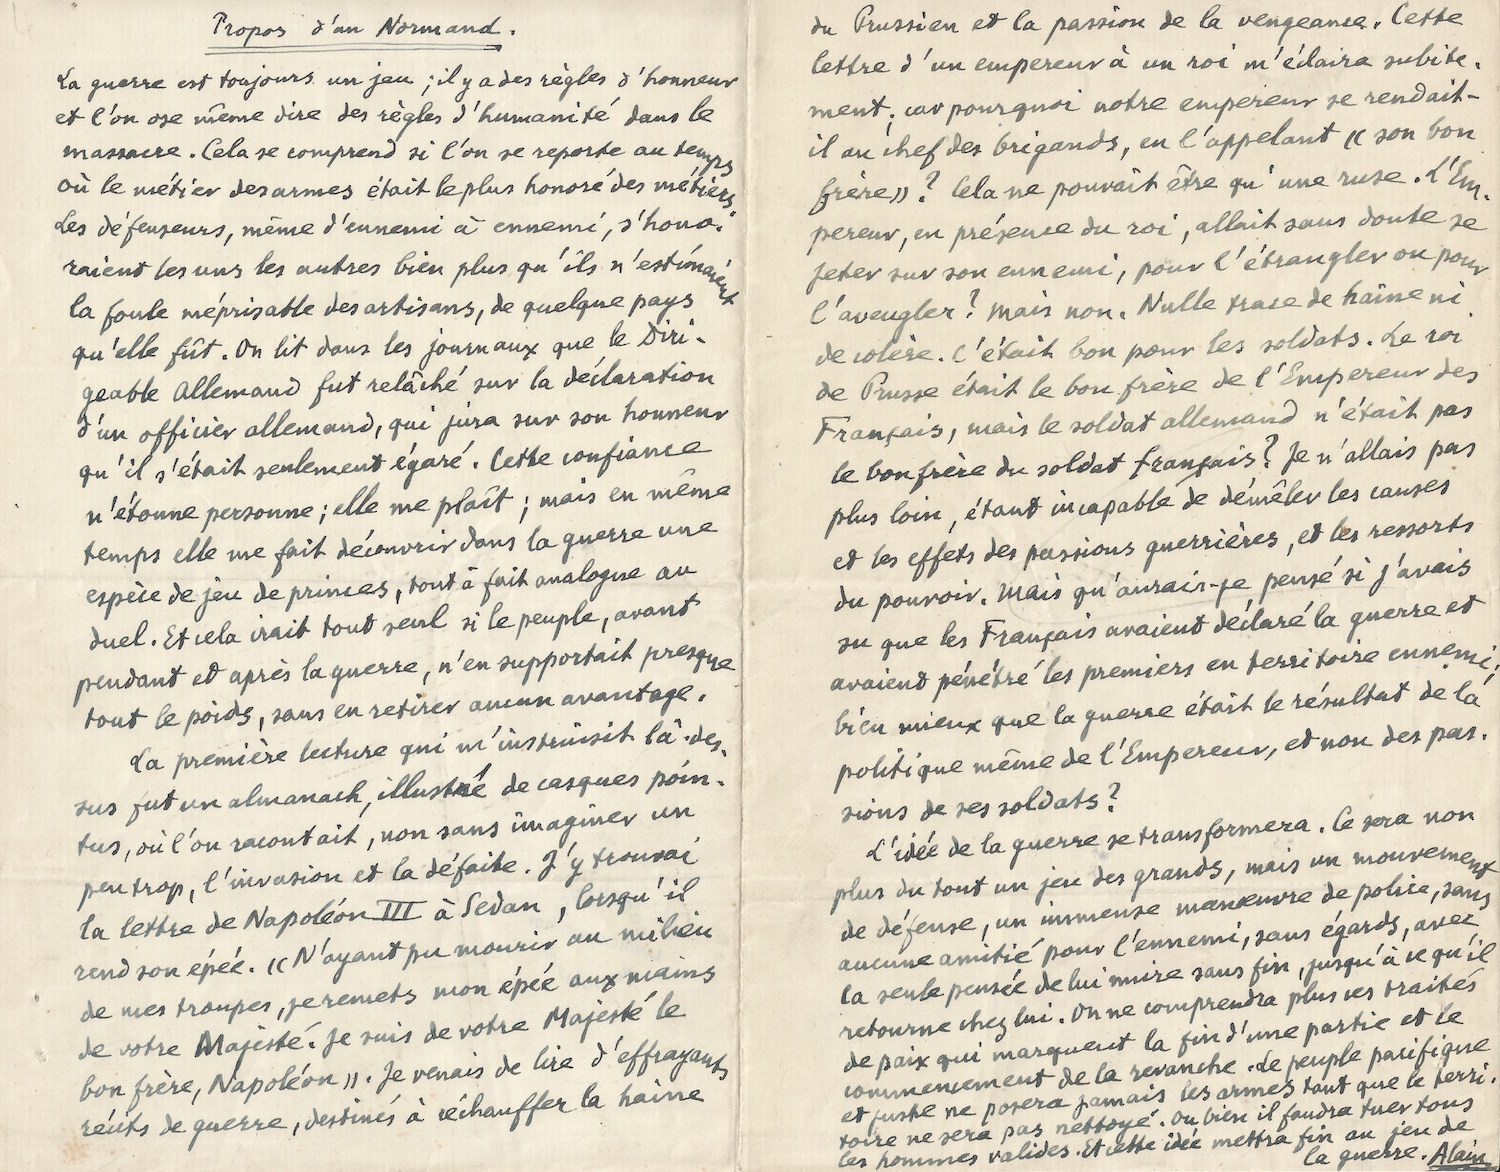 Propos d'un Normand.
La guerre est toujours un jeu ; il y a des règles d'honneur
et l'on ose même dire des règles d'humanité dans le
massacre. Cela se comprend si l'on se reporte au temps
où le métier des armes était le plus honoré des métiers.
Les défenseurs, même d'ennemi à ennemi, s'hono-
raient les uns les autres bien plus qu'ils n'estimaient
la foule méprisable des artisans, de quelque pays
qu'elle fût. On lit dans les journaux que le Diri-
geable Allemand fut relâché sur la déclaration
d'un officier allemand, qui jura sur son honneur
qu'il s'était seulement égaré. Cette confiance
n'étonne personne ; elle me plaît ; mais en même
temps elle me fait découvrir dans la guerre une
espèce de jeu de princes, tout à fait analogue au
duel. Et cela irait tout seul si le peuple, avant
pendant et après la guerre, n'en supportait presque
tout le poids, sans en retirer aucun avantage.
La première lecture qui m'instruisit là-des-
sus fut un almanach, illustré de casques poin-
tus, où l'on racontait, non sans imaginer un
peu trop, l'invasion et la défaite. J'y trouvai
la lettre de Napoléon III à Sedan, lorsqu'il
rend son épée. « N'ayant pu mourir au milieu
de mes troupes, je remets mon épée aux mains
de votre Majesté. Je suis de votre Majesté le
bon frère, Napoléon ». Je venais de lire d'effrayants
récits de guerre, destinés à réchauffer la haine
du Prussien et la passion de la vengeance. Cette
lettre d'un empereur à un roi m'éclaira subite-
ment ; car pourquoi notre empereur se rendait-
il au chef des brigands, en l'appelant « son bon
frère » ? Cela ne pouvait être qu'une ruse. L'Em-
pereur, en présence du roi, allait sans doute se
jeter sur son ennemi, pour l'étrangler ou pour
l'aveugler ? Mais non. Nulle trace de haine ni
de colère. C'était bon pour les soldats. Le roi
de Prusse était le bon frère de l'Empereur des
Français, mais le soldat allemand n'était pas
le bon frère du soldat français ? Je n'allais pas
plus loin, étant incapable de démêler les causes
et les effets des passions guerrières, et les ressorts
du pouvoir. Mais qu'aurais-je pensé si j'avais
su que les Français avaient déclaré la guerre et
avaient pénétré les premiers en territoire ennemi ;
bien mieux que la guerre était le résultat de la
politique même de l'Empereur, et non des pas-
sions de ses soldats ?
L'idée de la guerre se transformera. Ce sera non
plus du tout un jeu des grands, mais un mouvement
de défense, un immense manœuvre de police, sans
aucune amitié pour l'ennemi, sans égards, avec
la seule pensée de lui nuire sans fin, jusqu'à ce qu'il
retourne chez lui. On ne comprendra plus ces traités
de paix qui marquent la fin d'une partie et le
commencement de la revanche. Le peuple pacifique
et juste ne posera jamais les armes tant que le terri-
toire ne sera pas nettoyé. Ou bien il faudra tuer tous
les hommes valides. Et cette idée mettra fin au jeu de
la guerre. Alain